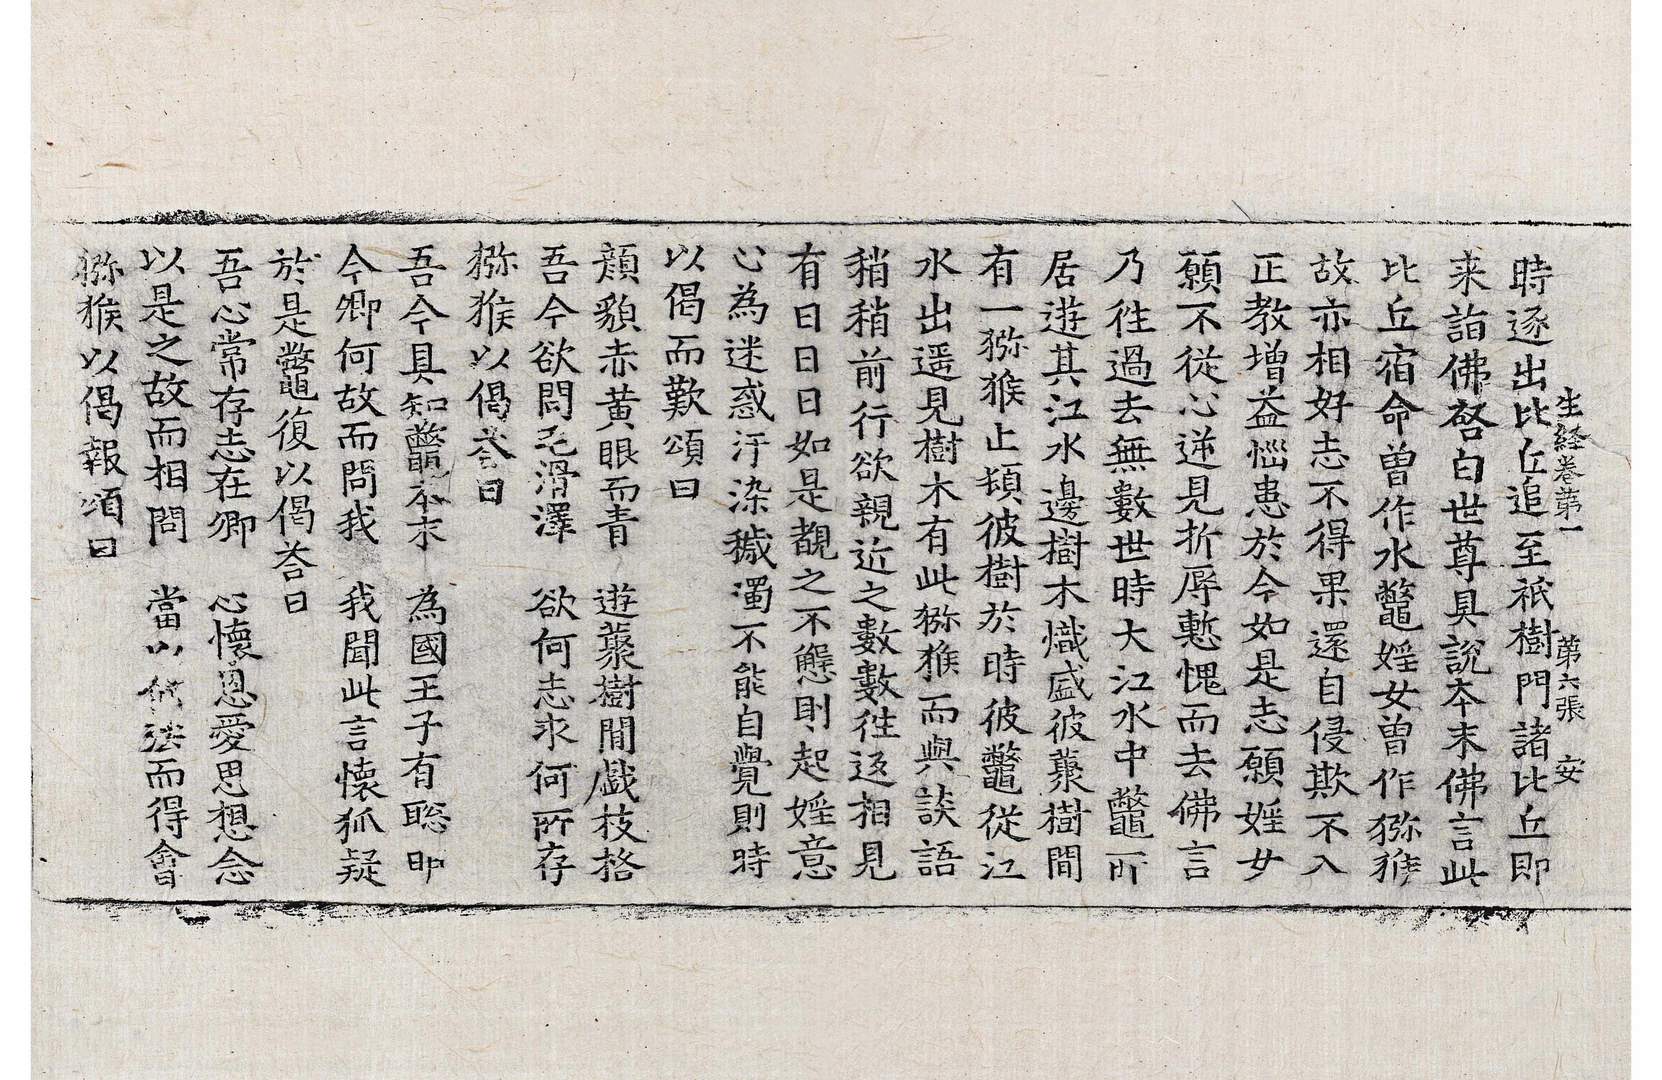 生經卷第一 第六張 安
時逐出比丘追至祇樹門諸比丘即
来詣佛啓白世尊具說本末佛言此
比丘宿命曾作水鼈婬女曾作猕猴
故亦相好志不得果還自侵欺不入
正教增益惱患於今如是志願婬女
願不從心逆見折辱慙愧而去佛言
乃往過去無數世時大江水中鼈所
居遊其江水邊樹木熾盛彼藂樹間
有一猕猴止頓彼樹於時彼鼈從江
水出遥見樹木有此猕猴而與談語
稍稍前行欲親近之數數往返相見
有日日日日如是覩之不懈則起婬意
心為迷惑汙染穢濁不能自覺則時
以偈而歎頌曰
顏貌赤黃眼而青 遊藂樹間戲枝格
吾今欲問毛滑澤 欲何志求何所存
猕猴以偈荅曰
吾今具知鼈本末 為國王子有聡明
今卿何故而問我 我聞此言懷狐疑
於是鼈復以偈荅曰
吾心常存志在卿 心懷恩愛思想念
以是之故而相問 當以 法而得會
猕猴以偈報頌曰